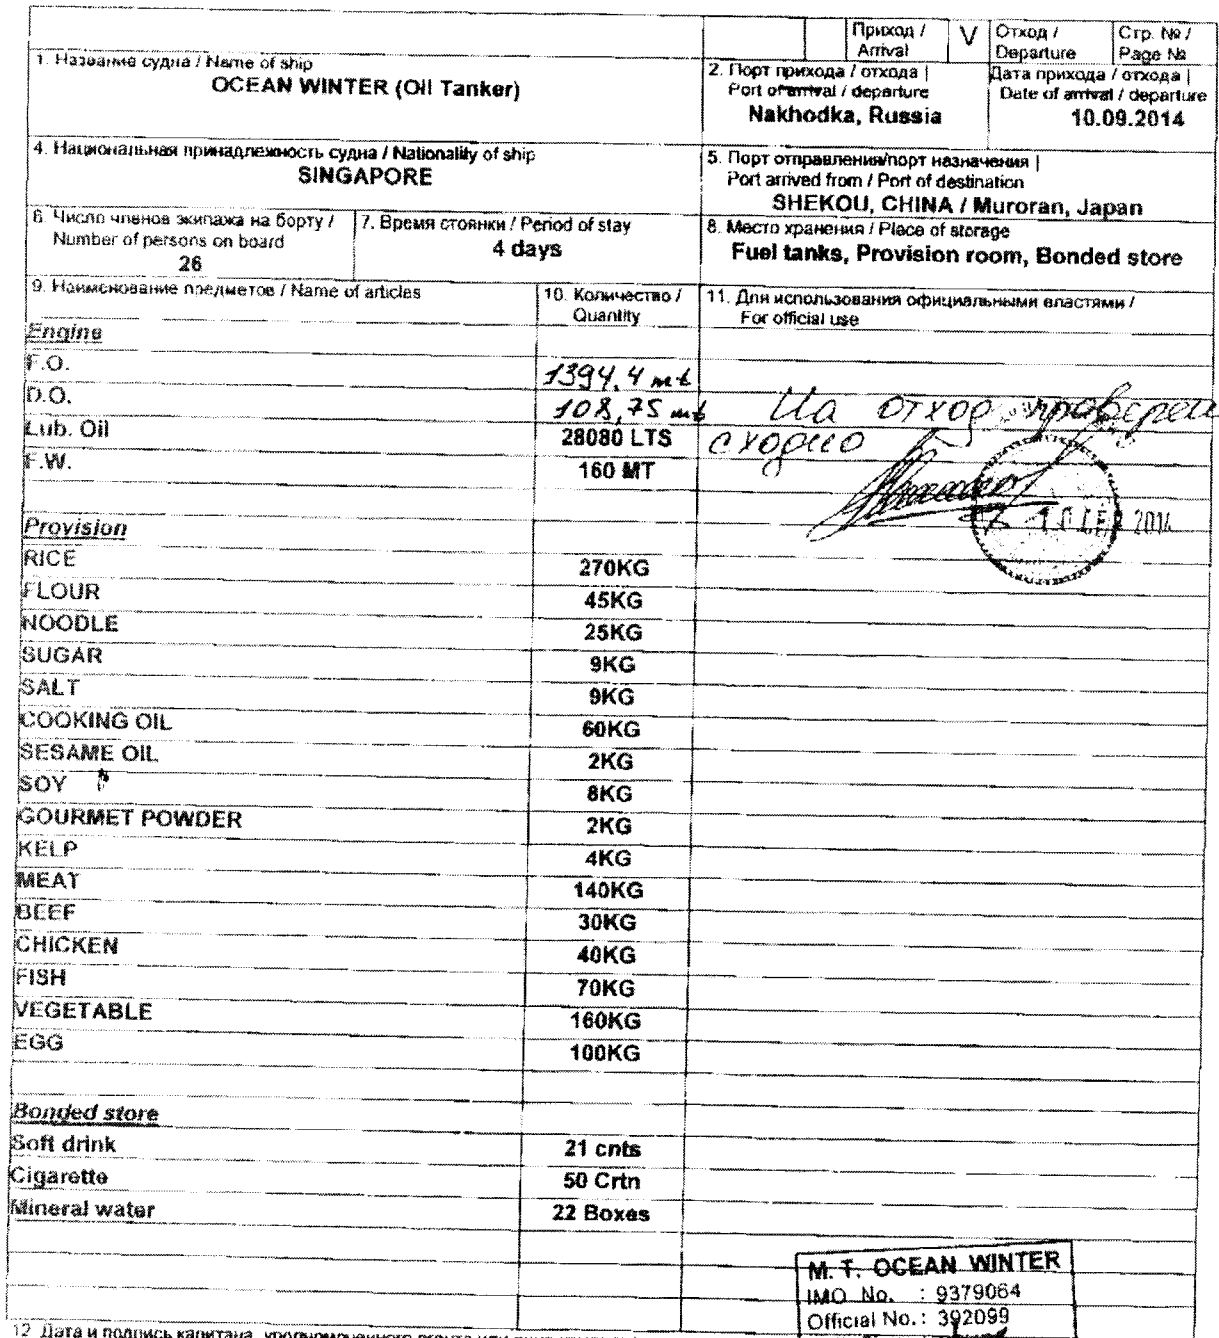 Приход / Arrival V Отход / Departure Стр. № / Page №
1. Название судна / Name of ship
OCEAN WINTER (Oil Tanker)
2. Порт прихода / отхода |
Port of arrival / departure
Nakhodka, Russia
Дата прихода / отхода |
Date of arrival / departure
10.09.2014
4. Национальная принадлежность судна / Nationality of ship
SINGAPORE
5. Порт отправления/порт назначения |
Port arrived from / Port of destination
SHEKOU, CHINA / Muroran, Japan
6. Число членов экипажа на борту /
Number of persons on board
26
7. Время стоянки / Period of stay
4 days
8. Место хранения / Place of storage
Fuel tanks, Provision room, Bonded store
9. Наименование предметов / Name of articles
10. Количество /
Quantity
11. Для использования официальными властями /
For official use
Engine
F.O. 1394,4 mt
D.O. 108,75 mt
На отход проверен
Lub. Oil 28080 LTS
сходно
F.W. 160 MT
2014
Provision
RICE 270KG
FLOUR 45KG
NOODLE 25KG
SUGAR 9KG
SALT 9KG
COOKING OIL 60KG
SESAME OIL 2KG
SOY 8KG
GOURMET POWDER 2KG
KELP 4KG
MEAT 140KG
BEEF 30KG
CHICKEN 40KG
FISH 70KG
VEGETABLE 160KG
EGG 100KG
Bonded store
Soft drink 21 cnts
Cigarette 50 Crtn
Mineral water 22 Boxes
M. T. OCEAN WINTER
IMO No. : 9379064
Official No. : 392099
12. Дата и подпись капитана, уполномоченного агента или